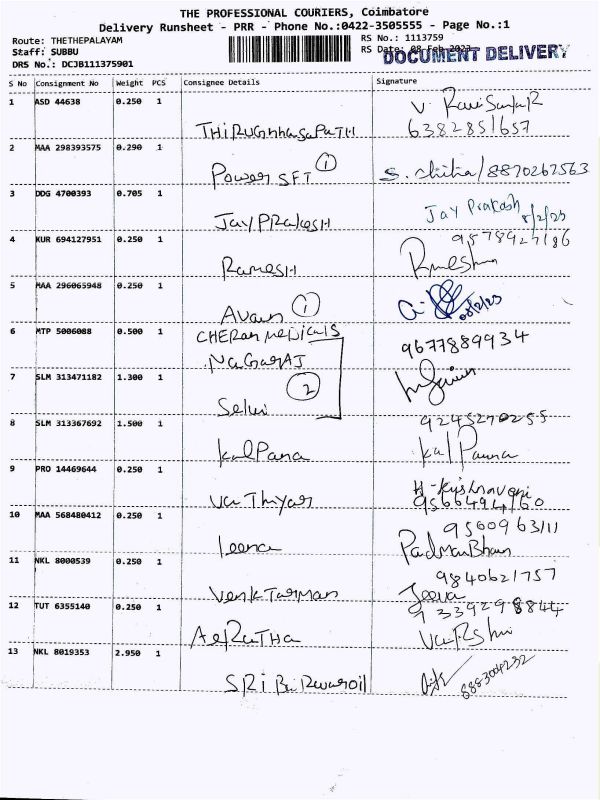 THE PROFESSIONAL COURIERS, Coimbatore
Delivery Runsheet - PRR - Phone No.:0422-3505555 - Page No.:1
Route: THETHEPALAYAM RS No.: 1113759
Staff: SUBBU RS Date: 08 Feb 2023
DRS No.: DCJB111375901 DOCUMENT DELIVERY
S No Consignment No Weight PCS Consignee Details Signature
1 ASD 44638 0.250 1 V RaviSankaR
THIRUGnhasaPaTH 6382851657
2 MAA 298393575 0.290 1
Power SFT 1 S. chitra/8870267563
3 DDG 4700393 0.705 1
Jay PRakesH Jay Prakash 8/2/23
4 KUR 694127951 0.250 1 9578927186
RamesH
5 MAA 296065948 0.250 1
Avaus 1 08/2/23
6 MTP 5006088 0.500 1 CHERan meDicalS 9677889934
NaGaraJ
7 SLM 313471182 1.300 1
Selvi 2
8 SLM 313367692 1.500 1 9245270255
kalPana kalPana
9 PRO 14469644 0.250 1 H-Krishnaveni
VaThyar 9566494160
10 MAA 568480412 0.250 1 9560963111
leena PadmaBhan
11 NKL 8000539 0.250 1 9840621757
VenkTarman Jeeva
12 TUT 6355140 0.250 1 9339298844
VaRshi
13 NKL 8019353 2.950 1
SRI 888304232